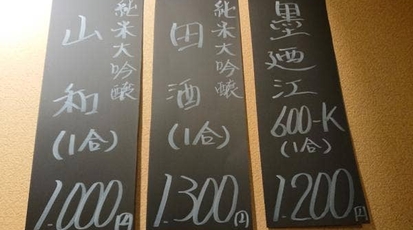 墨廼江
600-K
(1合)
1.200円
純米大吟醸
田酒
(1合)
1.300円
純米大吟醸
山和
(1合)
1.000円